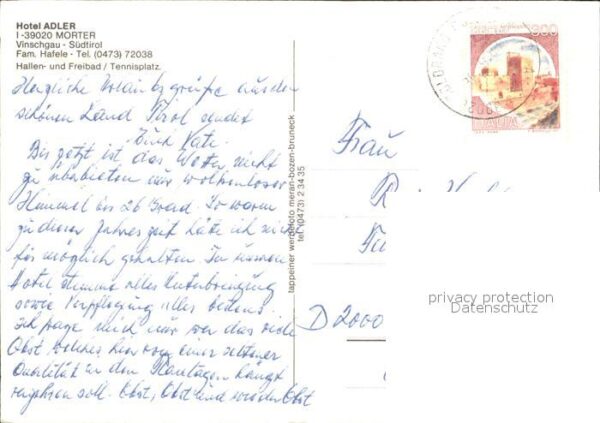 Hotel ADLER
I-39020 MORTER
Vinschgau - Südtirol
Fam. Hafele - Tel. (0473) 72038
Hallen- und Freibad / Tennisplatz.
Herzliche grüße aus dem
schönen Land Tirol sendet
Euch Vati.
Bis jetzt ist das Wetter nicht
zu überbieten nur wolkenloser
Himmel bis 26 Grad. So warm
zu dieser Jahreszeit hätte ich nicht
für möglich gehalten. In unserem
Hotel stimmt alles Unterbringung
sowie Verpflegung alles bestens.
Ich frage mich nur wer das viele
Obst welches hier von einer seltenen
Qualität in den Plantagen hängt
soll. Obst, Obst und wieder Obst
tappeiner werbefoto meran-bozen-bruneck
tel. (0473) 2 34 35
800
ITALIA
Frau
D 2000
privacy protection
Datenschutz